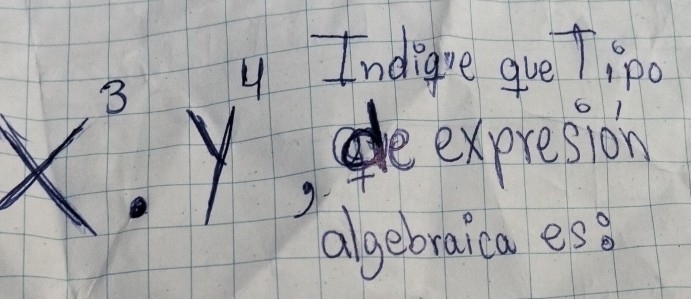 X³ · Y⁴, Indique que Tipo
de expresión
algebraica es: